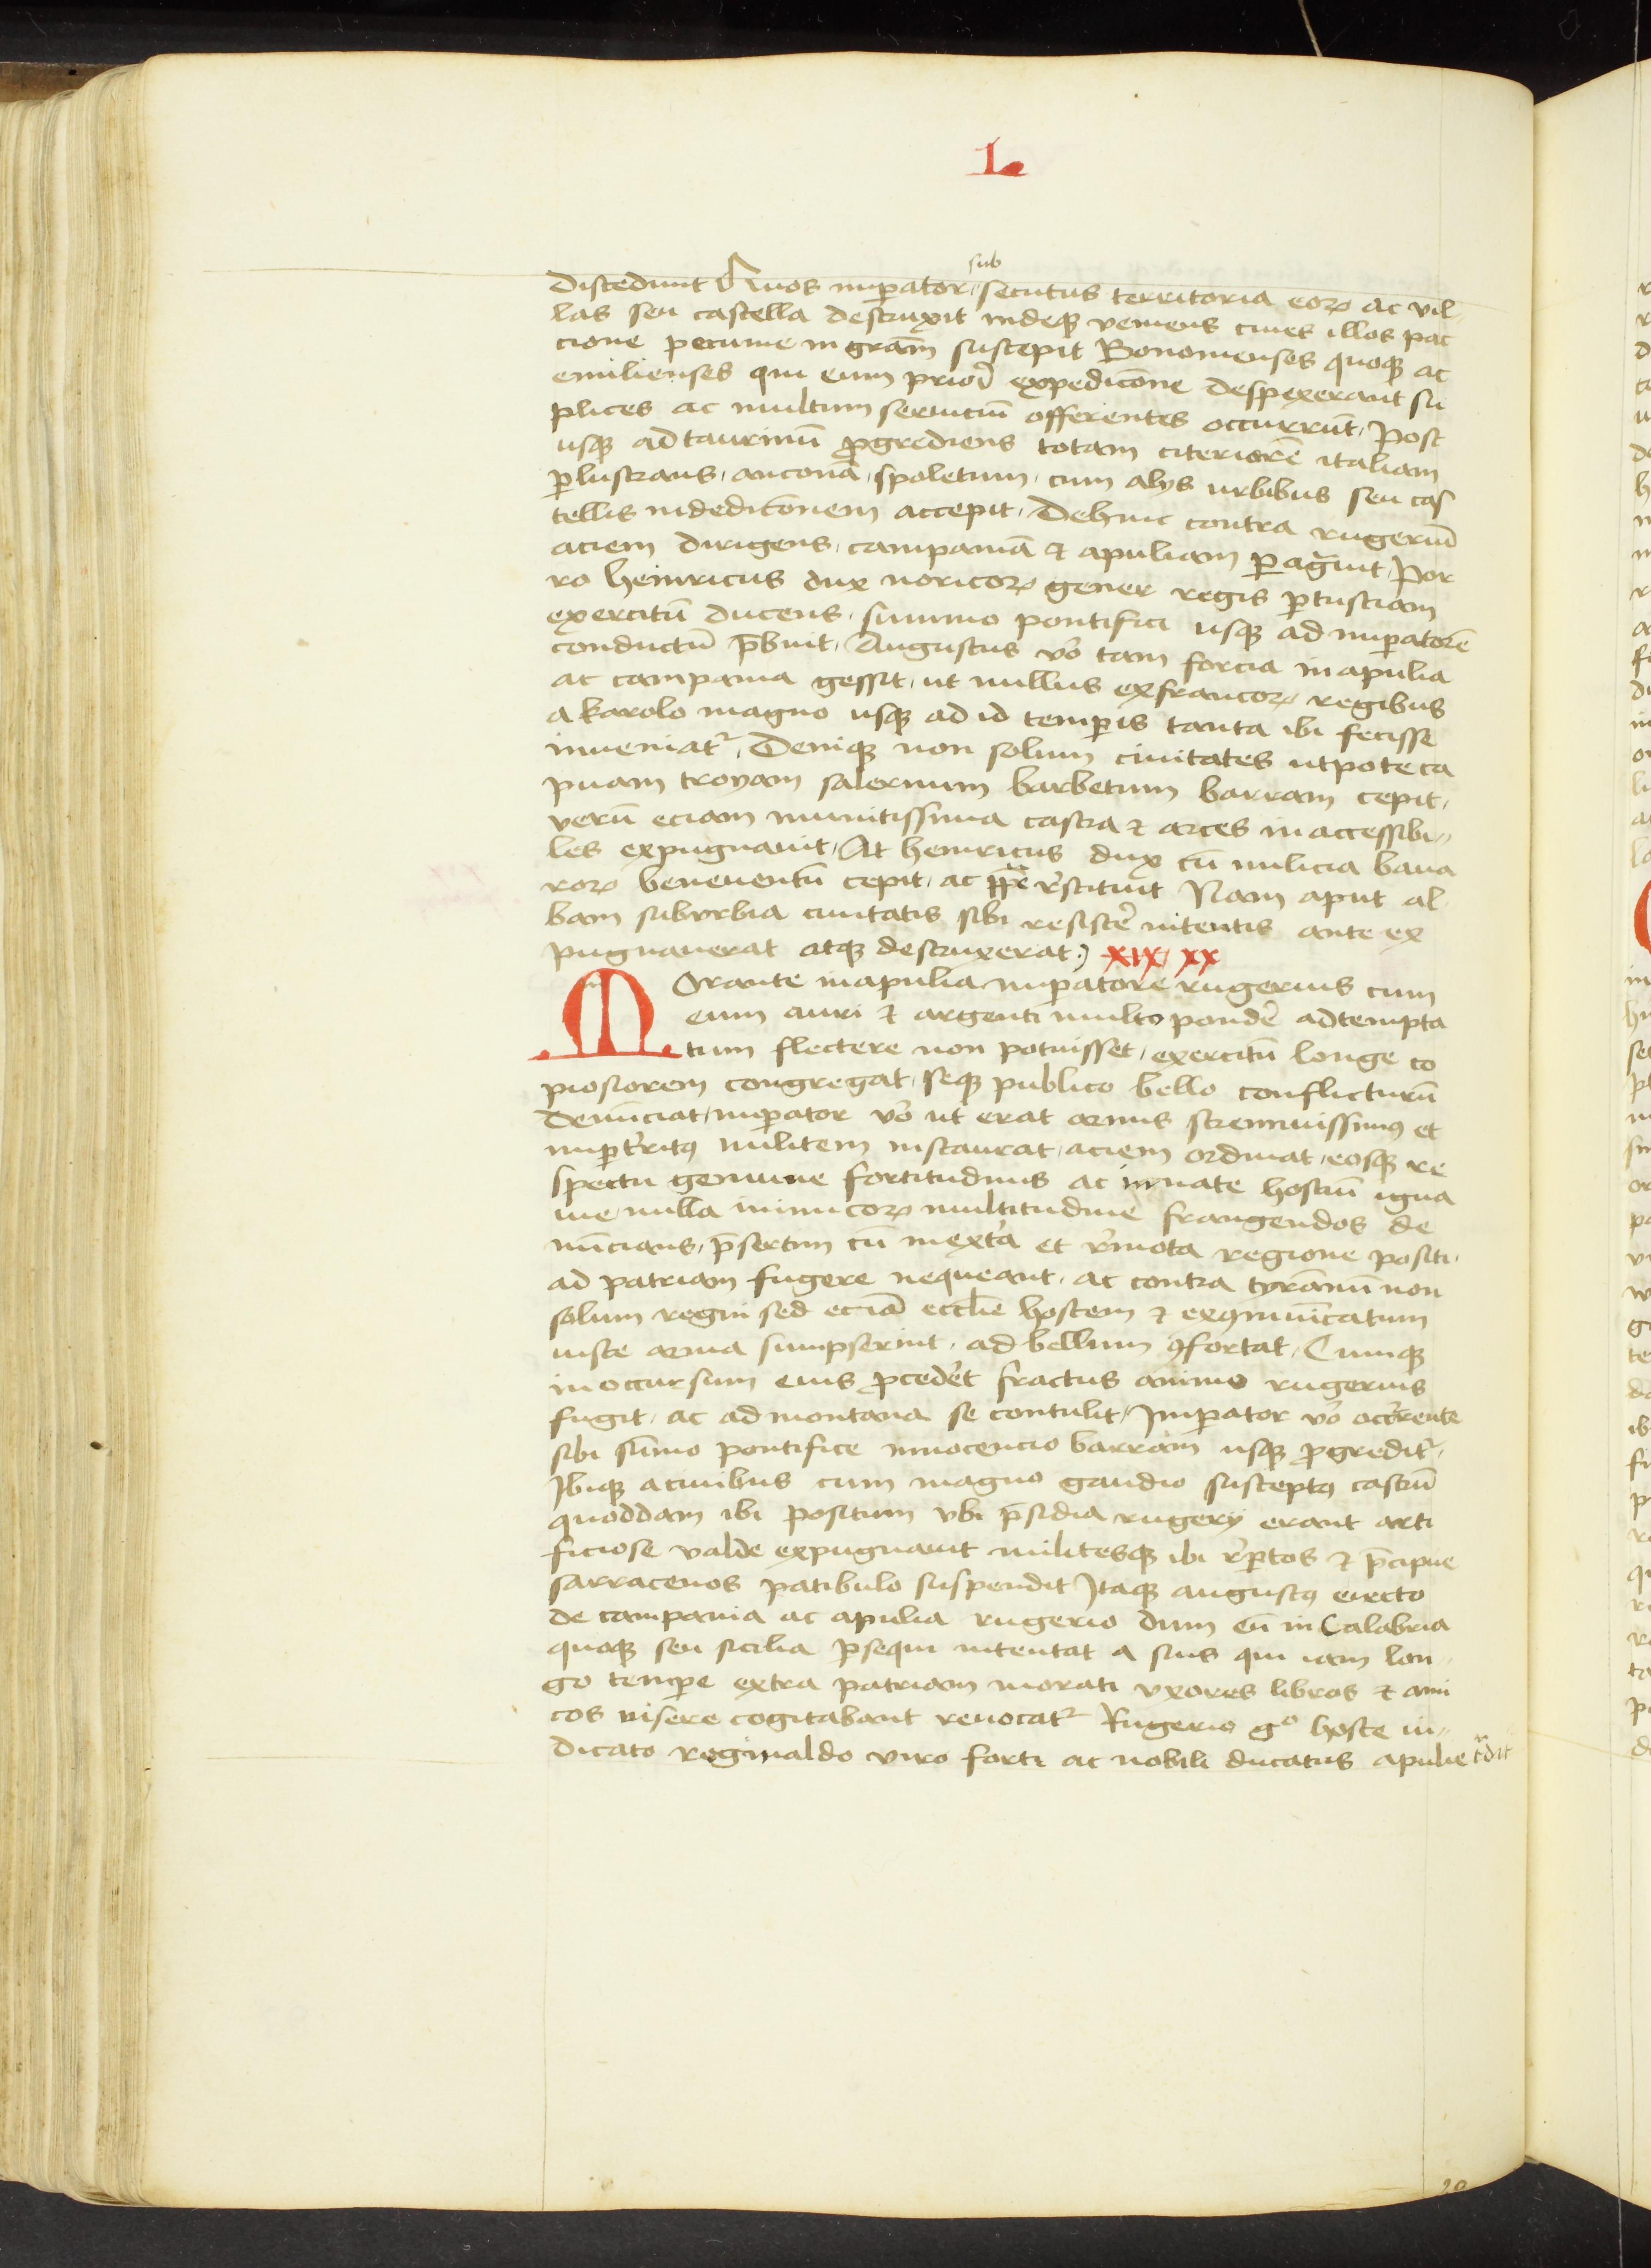 L
sub
discedunt Quos imp̄ator secutus territoria eoꝝ ac vil-
las seu castella destruxit indeqꝫ veniens ciues illos pac
cione pecunie in gr̄am suscepit Bononienses quoqꝫ ac
emilienses qui eum priori expedicōne despexerant su
plices ac multum seruiciū offerentes occurrūt, Post
usqꝫ ad taurinū ꝓgrediens totam citeriorē italiam
ꝑlustrans, anconā, spoletum, cum alijs urbibus seu cas
tellis in dedicōnem accepit, Dehinc contra rugeriū
aciem dirigens, campaniā et apuliam ꝑagᷓuit, Por
ro heinricus dux noricoꝝ gener regis ꝑ tusciam
exercitū ducens, summo pontifici usqꝫ ad imꝑatorē
conductū p̄buit, Augustus v̊o tam forcia in apulia
ac campania gessit, ut nullus ex francoꝝ regibus
a karolo magno usqꝫ ad id temꝑis tanta ibi fecisse
inueniat᷑, Deniqꝫ non solum ciuitates utpote ca
puam troyam salernum barbetum barram cepit,
verū eciam munitissima castra et arces in accessibi-
les expugnauit, At heinricus dux cū milicia baua
roꝝ beneuentū cepit, ac ꝑꝑe r̄stituit Nam aput al
bam suburbia ciuitatis sibi resister̄ nitentis ante ex
pugnauerat atqꝫ destruxerat:) XIX XX
MOrante in apulia imꝑatore rugerius cum
eum auri et argenti multo ponder̄ ad tempta
tum flectere non potuisset, exercitū longe co
piosiorem congregat, seqꝫ publico bello conflicturū
denūciat, imꝑator v̊o ut erat armis strennuissimꝰ et
imꝑt̄ritꝰ militem instaurat, aciem ordinat, eosqꝫ re
spectu genuine fortitudinis ac innate hostiū igna
uie, nulla inimicoꝝ multitudine frangendos de
nūcians, p̄sertim cū in ext̄a et r̄mota regione positi,
ad patriam fugere nequeant, ac contra tyrannū non
solum regni sed eciā ecclīe hostem et exꝯmūicatum
iuste arma sumpserint, ad bellum ꝯfortat, Cumqꝫ
in occursum eius ꝓceder̄t fractus animo rugerius
fugit, ac ad montana se contulit, Imꝑator v̊o occ̄rente
sibi sūmo pontifice innocencio barram usqꝫ ꝓgredit᷑,
Ibiqꝫ a ciuibus cum magno gaudio susceptꝰ castrū
quoddam ibi positum vbi p̄sidia rugerij erant arti
ficiose valde expugnauit militesqꝫ ibi r̄ꝑtos et p̄cipue
sarracenos patibulo suspendit Itaqꝫ augustꝰ eiecto
de campania ac apulia rugerio dum eū in Calabria
quoqꝫ seu sicilia ꝑsequi intentat a suis qui iam lon-
go tempe extra patriam morati vxores libros et ami
cos uisere cogitabant reuocat᷑ Rugerio gᵒ hoste iu-
dicato reginaldo viro forti ac nobili ducatus apulie t̄dit